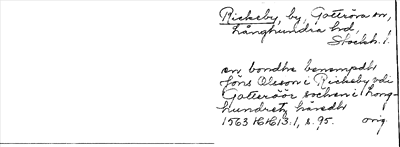 Rickeby, by, Gottröra sn,
Långhundra hd,
Stockh. l.
en bondhe benempdt
Jöns Olsson i Rickeby vdi
Gotteröör sochen i Long-
hundretz häredt
1563 16/6 13:1, s. 95. orig.